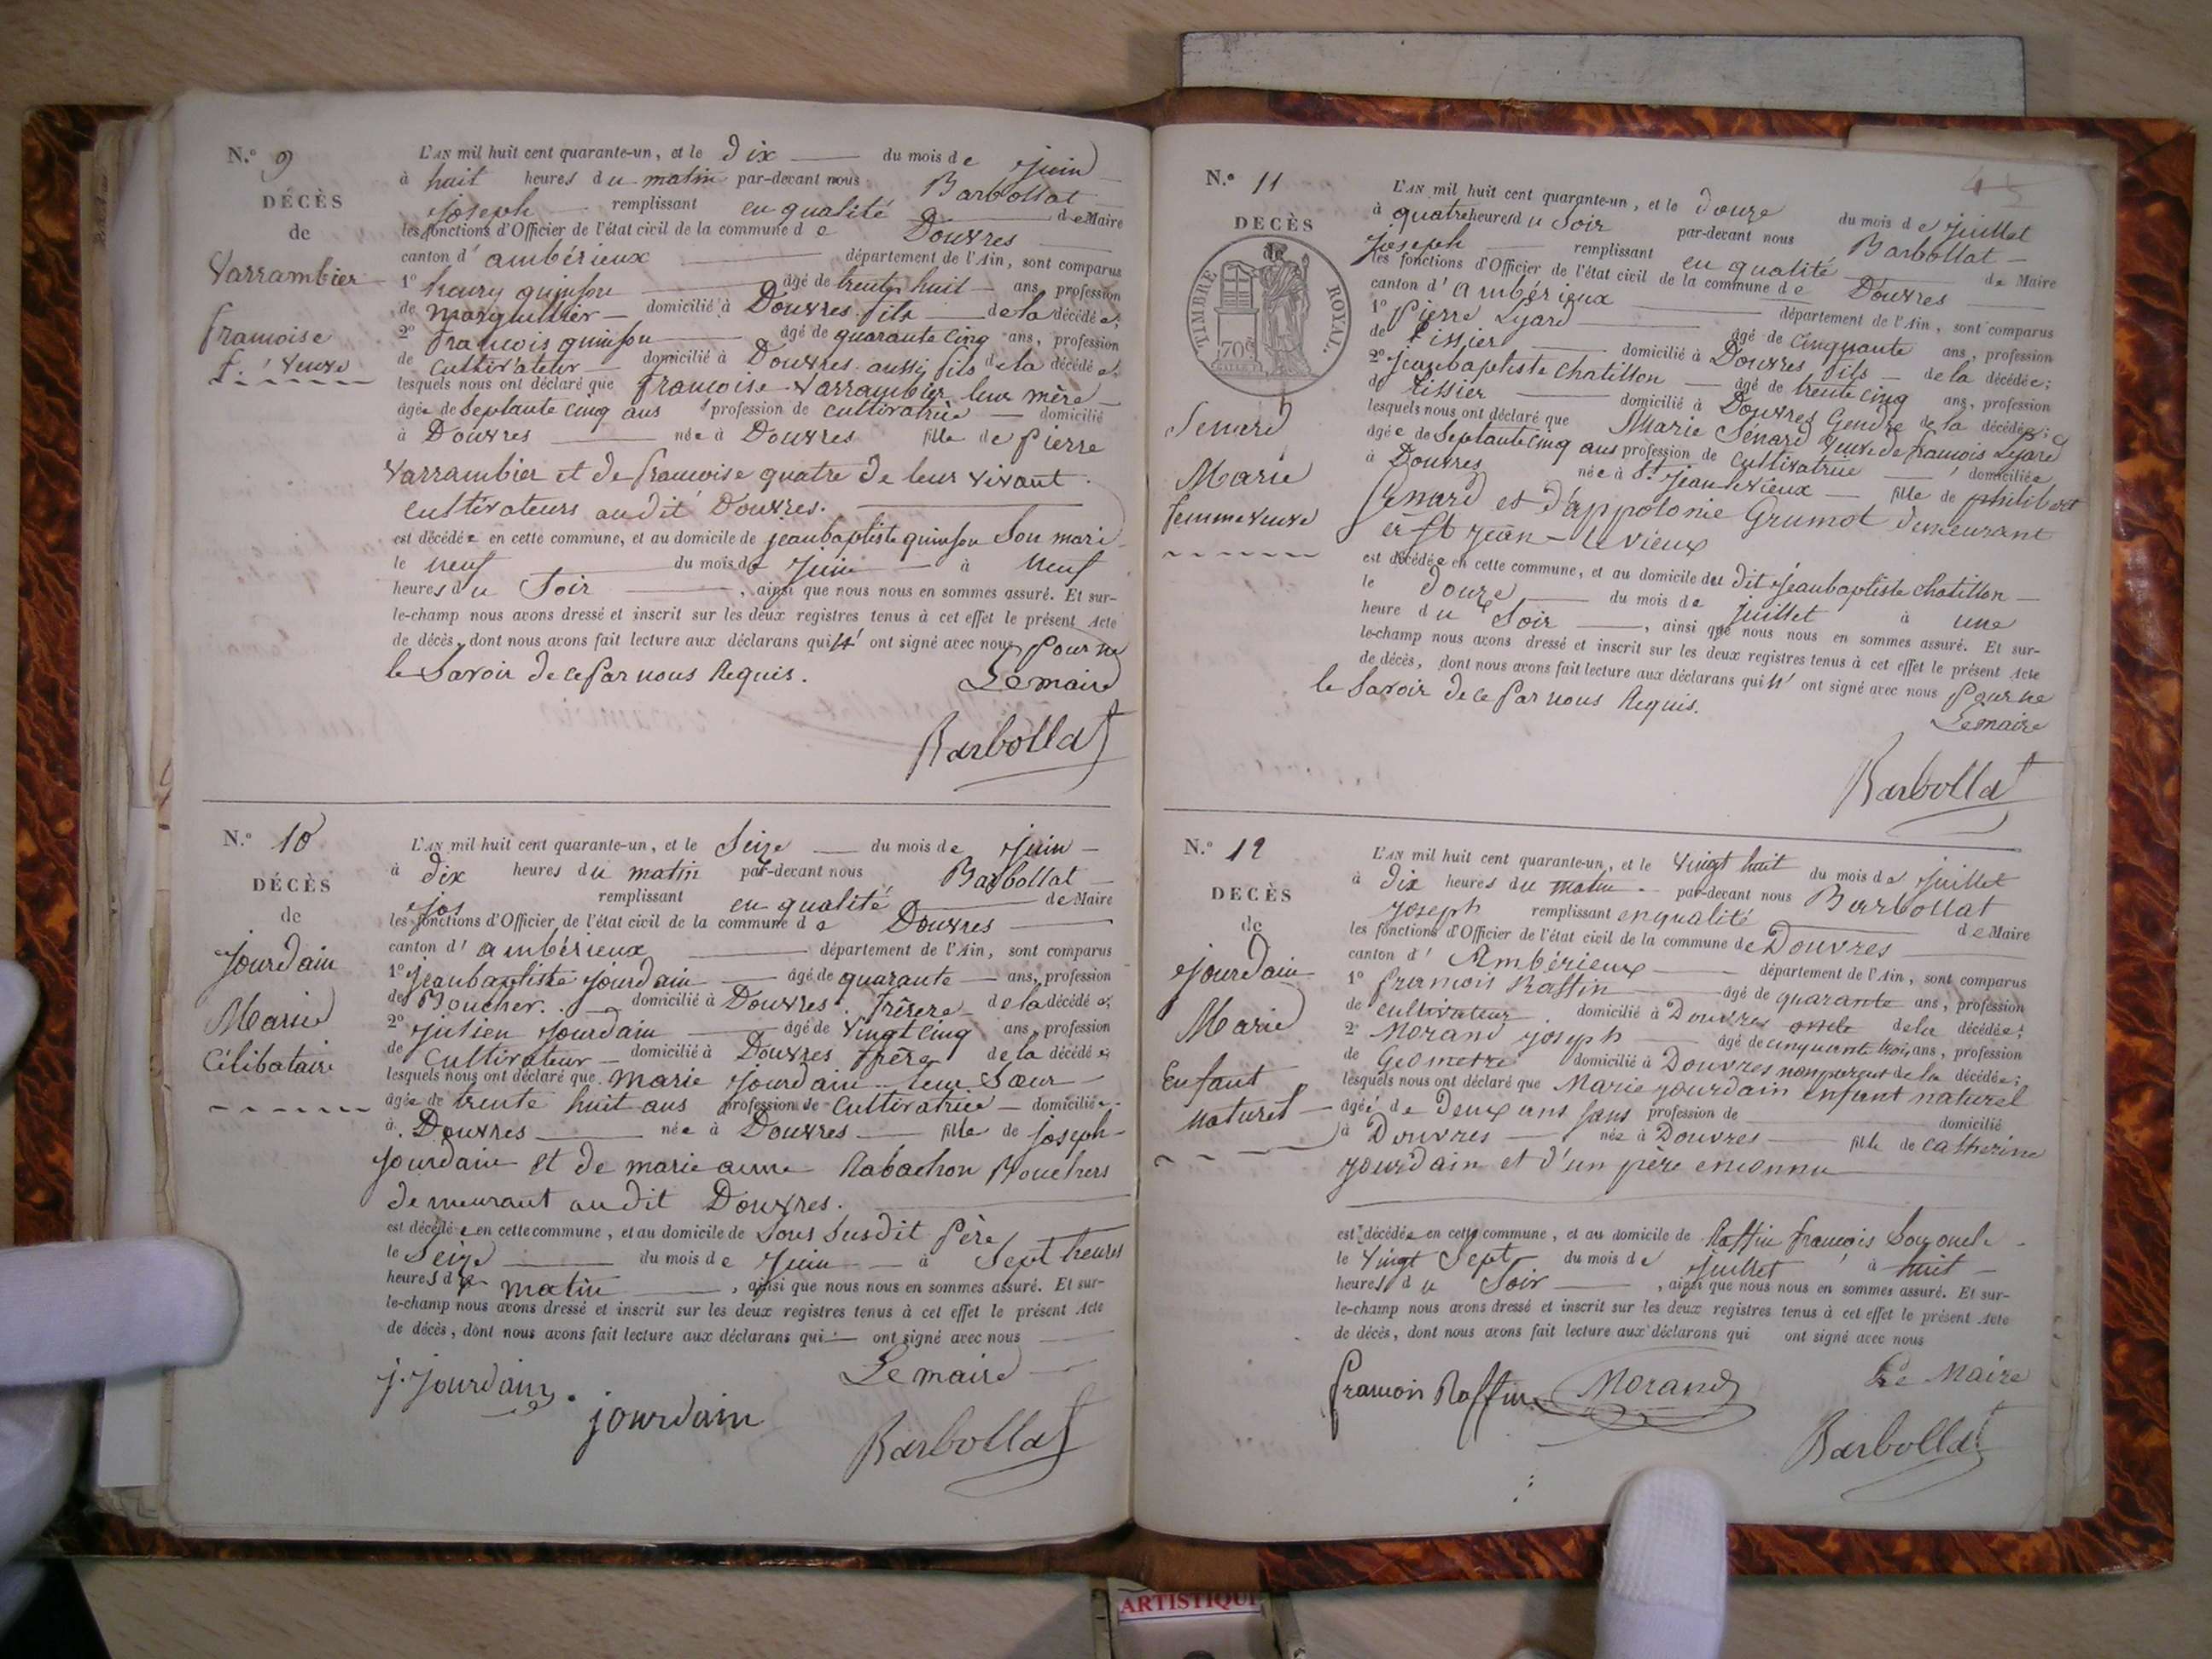 N.º 9
DÉCÈS
de
Varrambier
françoise
f. veuve
L'AN mil huit cent quarante-un, et le dix du mois de juin
à huit heures du matin par-devant nous Barbollat
joseph remplissant en qualité de Maire
les fonctions d'Officier de l'état civil de la commune de Douvres
canton d'ambérieux département de l'Ain, sont comparus
1º henry quinson âgé de trente huit ans, profession
de marguillier domicilié à Douvres fils de la décédée;
2º françois quinson âgé de quarante cinq ans, profession
de cultivateur domicilié à Douvres aussi fils de la décédée;
lesquels nous ont déclaré que françoise Varrambier leur mère
âgée de septante cinq ans profession de cultivatrice domicilié
à Douvres née à Douvres fille de pierre
Varrambier et de françoise quatre de leur vivant
cultivateurs audit Douvres.
est décédée en cette commune, et au domicile de jeanbaptiste quinson Son mari
le neuf du mois de Juin à neuf
heures du Soir, ainsi que nous nous en sommes assuré. Et sur-
le-champ nous avons dressé et inscrit sur les deux registres tenus à cet effet le présent Acte
de décès, dont nous avons fait lecture aux déclarans qui n' ont signé avec nous Pour ne
le Savoir de ce Par nous Requis. Le maire
Barbollat
N.º 10
DÉCÈS
de
Jourdain
Marie
Célibataire
L'AN mil huit cent quarante-un, et le Seize du mois de juin
à dix heures du matin par-devant nous Barbollat
jos remplissant en qualité de Maire
les fonctions d'Officier de l'état civil de la commune de Douvres
canton d'ambérieux département de l'Ain, sont comparus
1º jeanbaptiste jourdain âgé de quarante ans, profession
de Boucher. domicilié à Douvres. frèrere de la décédée;
2º julien Jourdain âgé de Vingt cinq ans, profession
de Cultivateur domicilié à Douvres frère de la décédée;
lesquels nous ont déclaré que marie jourdain leur Sœur
âgée de trente huit ans profession de Cultivatrice domiciliée
à Douvres née à Douvres fille de joseph
jourdain et de marie anne Rabachon Bouchers
demeurant audit Douvres.
est décédée en cette commune, et au domicile de Sons Susdit Père
le Seize du mois de Juin à Sept heures
heures du matin, ainsi que nous nous en sommes assuré. Et sur-
le-champ nous avons dressé et inscrit sur les deux registres tenus à cet effet le présent Acte
de décès, dont nous avons fait lecture aux déclarans qui ont signé avec nous
j. jourdain. jourdain Le maire
Barbollat
N.º 11
DÉCÈS
de
TIMBRE ROYAL.
70c
Senard
Marie
femme veuve
L'AN mil huit cent quarante-un, et le douze du mois de juillet
à quatre heures du Soir par-devant nous Barbollat
joseph remplissant en qualité de Maire
les fonctions d'Officier de l'état civil de la commune de Douvres
canton d'Ambérieux département de l'Ain, sont comparus
1º Pierre Lyard âgé de cinquante ans, profession
de tissier domicilié à Douvres fils de la décédée;
2º jeanbaptiste Chatillon âgé de trente cinq ans, profession
de tissier domicilié à Douvres Gendre de la décédée;
lesquels nous ont déclaré que Marie Sénard Veuve de françois Lyard
âgée de Septante cinq ans profession de Cultivatrice domiciliée
à Douvres née à St jean levieux fille de philibert
Senard et d'appolonie Grumot demeurant
à St jean-levieux
est décédée en cette commune, et au domicile du dit Jeanbaptiste chatillon
le douze du mois de juillet à une
heure du Soir, ainsi que nous nous en sommes assuré. Et sur-
le-champ nous avons dressé et inscrit sur les deux registres tenus à cet effet le présent Acte
de décès, dont nous avons fait lecture aux déclarans qui n' ont signé avec nous Pour ne
le Savoir de ce Par nous Requis. Le maire
Barbollat
N.º 12
DÉCÈS
de
Jourdain
Marie
Enfant
naturel
L'AN mil huit cent quarante-un, et le vingt huit du mois de juillet
à dix heures du matin par-devant nous Barbollat
joseph remplissant en qualité de Maire
les fonctions d'Officier de l'état civil de la commune de Douvres
canton d'Ambérieux département de l'Ain, sont comparus
1º françois Raffin âgé de quarante ans, profession
de cultivateur domicilié à Douvres oncle de la décédée;
2º Morand joseph âgé de cinquante trois ans, profession
de Géometre domicilié à Douvres non parent de la décédée;
lesquels nous ont déclaré que Marie jourdain enfant naturel
âgée de Deux ans sans profession de domicilié
à Douvres née à Douvres fille de catherine
jourdain et d'un père enconnu
est décédée en cette commune, et au domicile de Raffin françois Son oncle
le Vingt Sept du mois de juillet à huit
heures du Soir, ainsi que nous nous en sommes assuré. Et sur-
le-champ nous avons dressé et inscrit sur les deux registres tenus à cet effet le présent Acte
de décès, dont nous avons fait lecture aux déclarans qui ont signé avec nous
françois Raffin Morand Le Maire
Barbollat
ARTISTIQUE